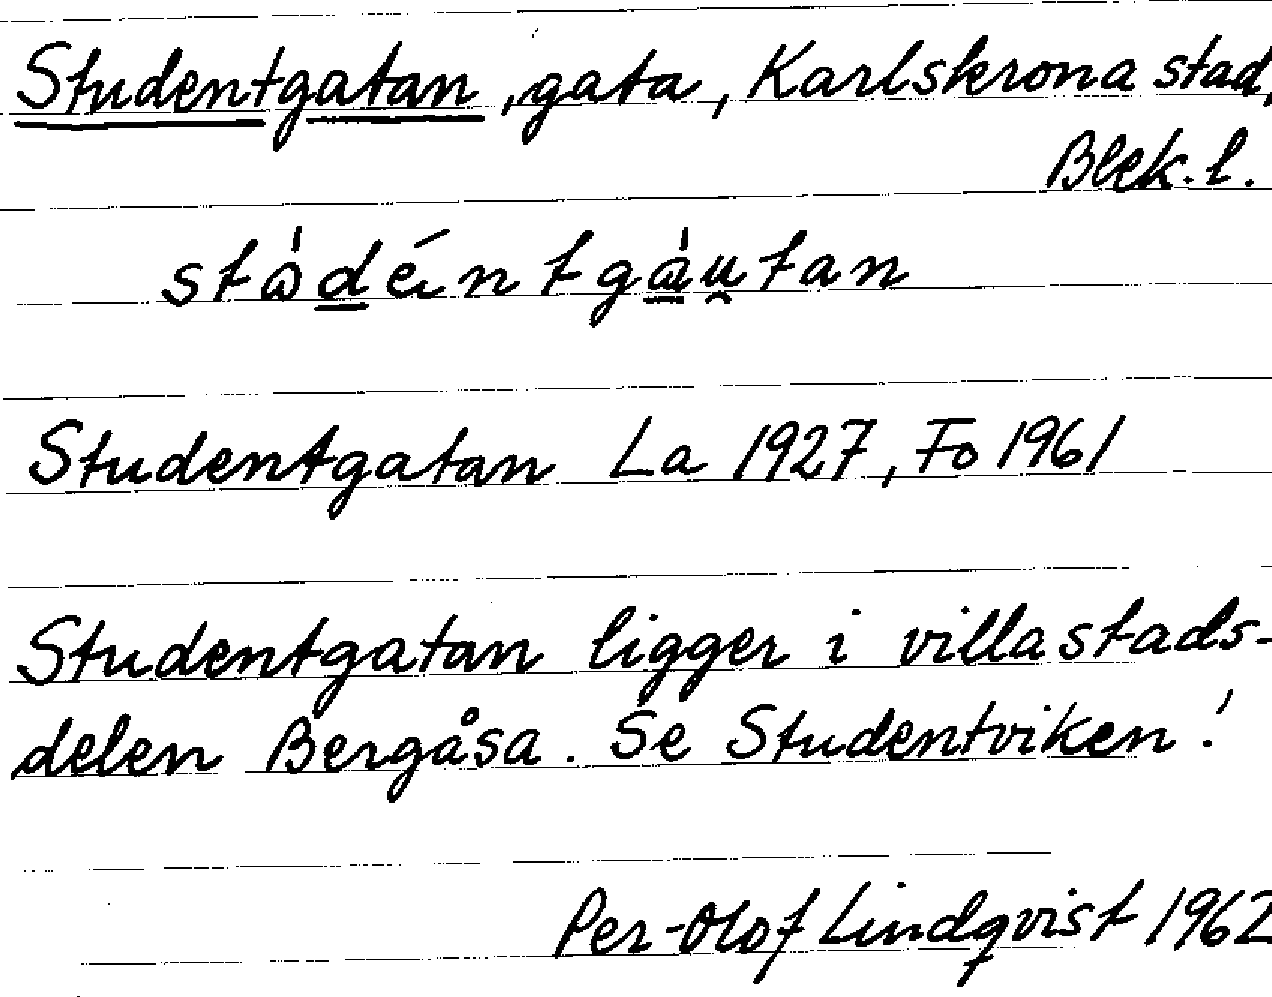 Studentgatan, gata, Karlskrona stad,
Blek. l.
Studentgatan La 1927, Fo 1961
Studentgatan ligger i villastads-
delen Bergåsa. Se Studentviken!
Per-Olof Lindqvist 1962